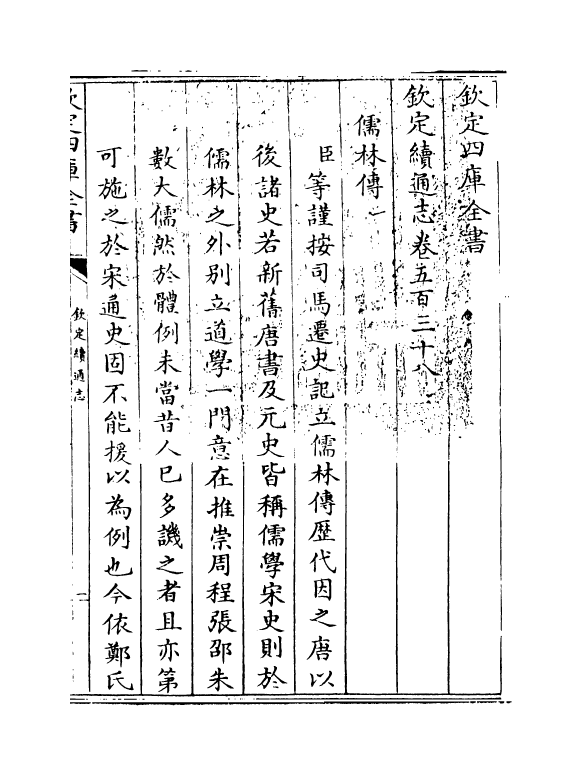 欽定四庫全書
欽定續通志卷五百三十八
儒林傳一
臣等謹按司馬遷史記立儒林傳歴代因之唐以
後諸史若新舊唐書及元史皆稱儒學宋史則於
儒林之外别立道學一門意在推崇周程張邵朱
數大儒然於體例未當昔人已多譏之者且亦第
可施之於宋通史固不能援以為例也今依鄭氏
欽定四庫全書
欽定續通志
一